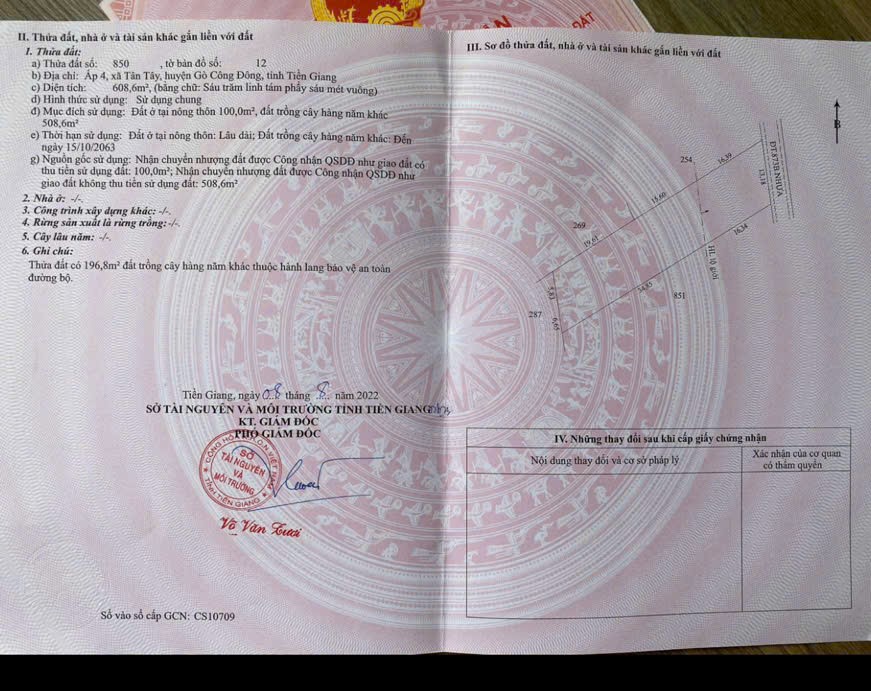 II. Thửa đất, nhà ở và tài sản khác gắn liền với đất
1. Thửa đất:
a) Thửa đất số: 850 , tờ bản đồ số: 12
b) Địa chỉ: Ấp 4, xã Tân Tây, huyện Gò Công Đông, tỉnh Tiền Giang
c) Diện tích: 608,6m², (bằng chữ: Sáu trăm linh tám phẩy sáu mét vuông)
d) Hình thức sử dụng: Sử dụng chung
đ) Mục đích sử dụng: Đất ở tại nông thôn 100,0m², đất trồng cây hàng năm khác
508,6m²
e) Thời hạn sử dụng: Đất ở tại nông thôn: Lâu dài; Đất trồng cây hàng năm khác: Đến
ngày 15/10/2063
g) Nguồn gốc sử dụng: Nhận chuyển nhượng đất được Công nhận QSDĐ như giao đất có
thu tiền sử dụng đất: 100,0m²; Nhận chuyển nhượng đất được Công nhận QSDĐ như
giao đất không thu tiền sử dụng đất: 508,6m²
2. Nhà ở: -/-.
3. Công trình xây dựng khác: -/-.
4. Rừng sản xuất là rừng trồng: -/-.
5. Cây lâu năm: -/-.
6. Ghi chú:
Thửa đất có 196,8m² đất trồng cây hàng năm khác thuộc hành lang bảo vệ an toàn
đường bộ.
Tiền Giang, ngày 08 tháng 8 năm 2022
SỞ TÀI NGUYÊN VÀ MÔI TRƯỜNG TỈNH TIỀN GIANG
KT. GIÁM ĐỐC
PHÓ GIÁM ĐỐC
SỞ
TÀI NGUYÊN
VÀ
MÔI TRƯỜNG
TỈNH TIỀN GIANG
Võ Văn Tươi
Số vào sổ cấp GCN: CS10709
ĐẤT
III. Sơ đồ thửa đất, nhà ở và tài sản khác gắn liền với đất
B
ĐT.873B NHỰA
13,18
254
16,89
15,60
269
19,61
16,34
HL lộ giới
5,83
34,85
851
287
6,65
IV. Những thay đổi sau khi cấp giấy chứng nhận
Nội dung thay đổi và cơ sở pháp lý
Xác nhận của cơ quan
có thẩm quyền